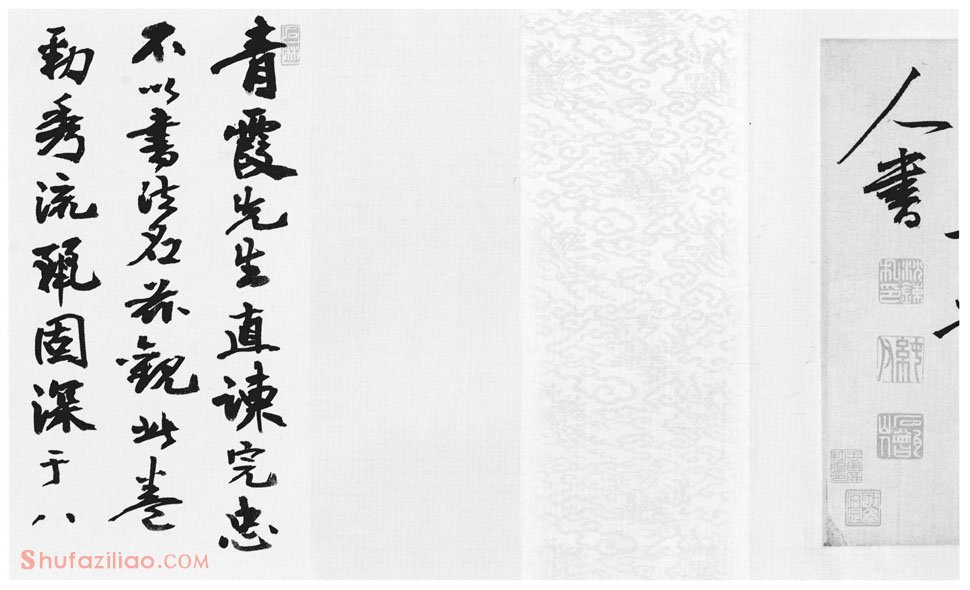 人書
沈鍊私印
青霞先生直諫完忠
不以書法名茲觀此卷
勁秀流麗固深于八
Shufaziliao.COM